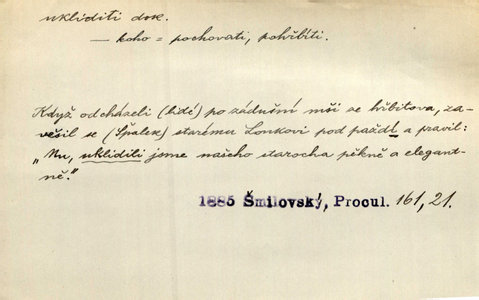 ukliditi dok.
— koho = pochovati, pohřbíti.
Když odcházeli (lidé) po zádušní mši ze hřbitova, za-
věsil se (Špalek) starému Lonkovi pod paždí a pravil:
„Nu, uklidili jsme našeho starocha pěkně a elegant-
ně."
1885 Šmilovský, Procul. 161, 21.